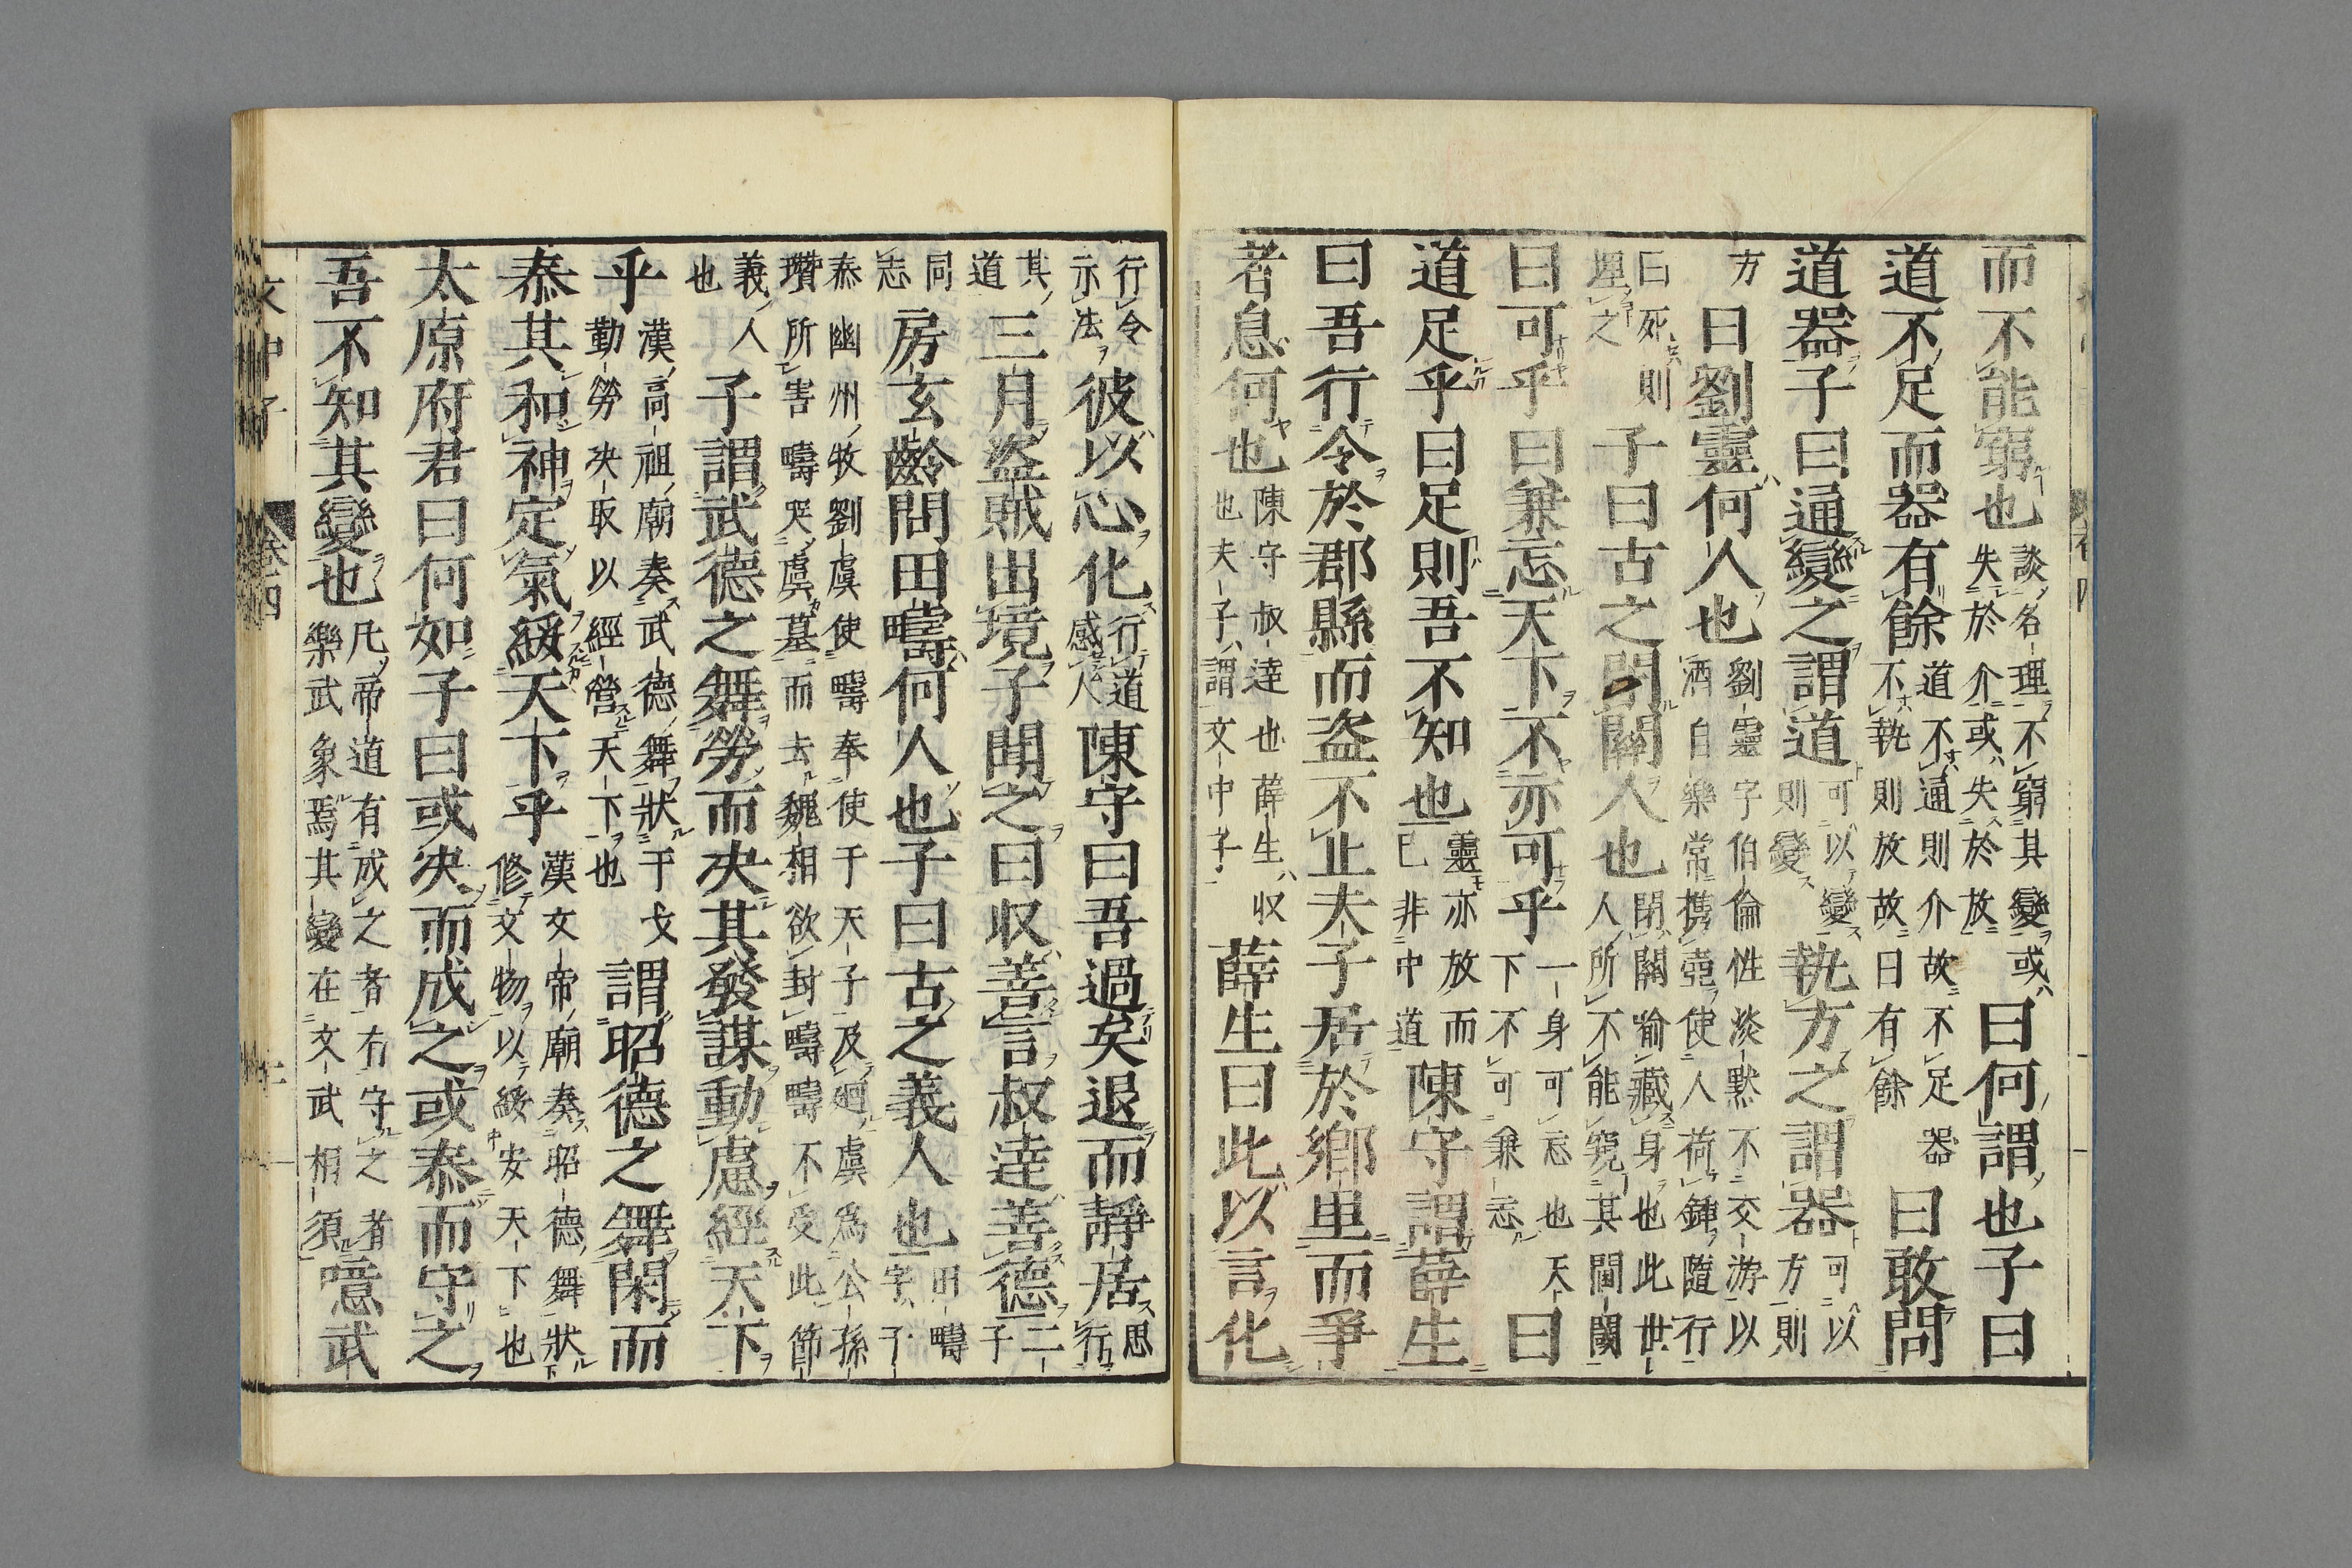 而不能窮也談名理不窮其變或失於介或失於放曰何謂也子曰
道不足而器有餘道不通則介故不足不執則放故曰有餘器曰敢問
道器子曰通變之謂道可以變則變執方之謂器可以方則
方曰劉靈何人也劉靈字伯倫性淡默不交游以酒自樂常携壺使人荷鍤隨行
曰死則埋之子曰古之閉關人也閉關喻藏身也此世人所不能窺其閫閾
曰可乎曰兼忘天下不亦可乎一身可忘也天下不可兼忘曰
道足乎曰足則吾不知也靈亦放而已非中道陳守謂薛生
曰吾行令於郡縣而盗不止夫子居於鄉里而爭
者息何也陳守叔達也薛生収也夫子謂文中子薛生曰此以言化
行令示法彼以心化行道感人陳守曰吾過矣退而靜居思行
其道三月盗賊出境子聞之曰収善言叔達善德二子
同志房玄齡問田疇何人也子曰古之義人也田疇字子
泰幽州牧劉虞使疇奉使于天子及廻虞爲公孫瓚所害疇哭虞墓而去魏相欲封疇疇不受此節
義人也子謂武德之舞勞而决其發謀動慮經天下
乎漢高祖廟奏武德舞狀于戈勤勞决取以經營天下也謂昭德之舞閑而
泰其和神定氣綏天下乎漢文帝廟奏昭德舞狀修文物以綏安天下也
太原府君曰何如子曰或决而成之或泰而守之
吾不知其變也凡帝道有成之者有守之者樂武象焉其變在文武相須噫武
文中子
卷四